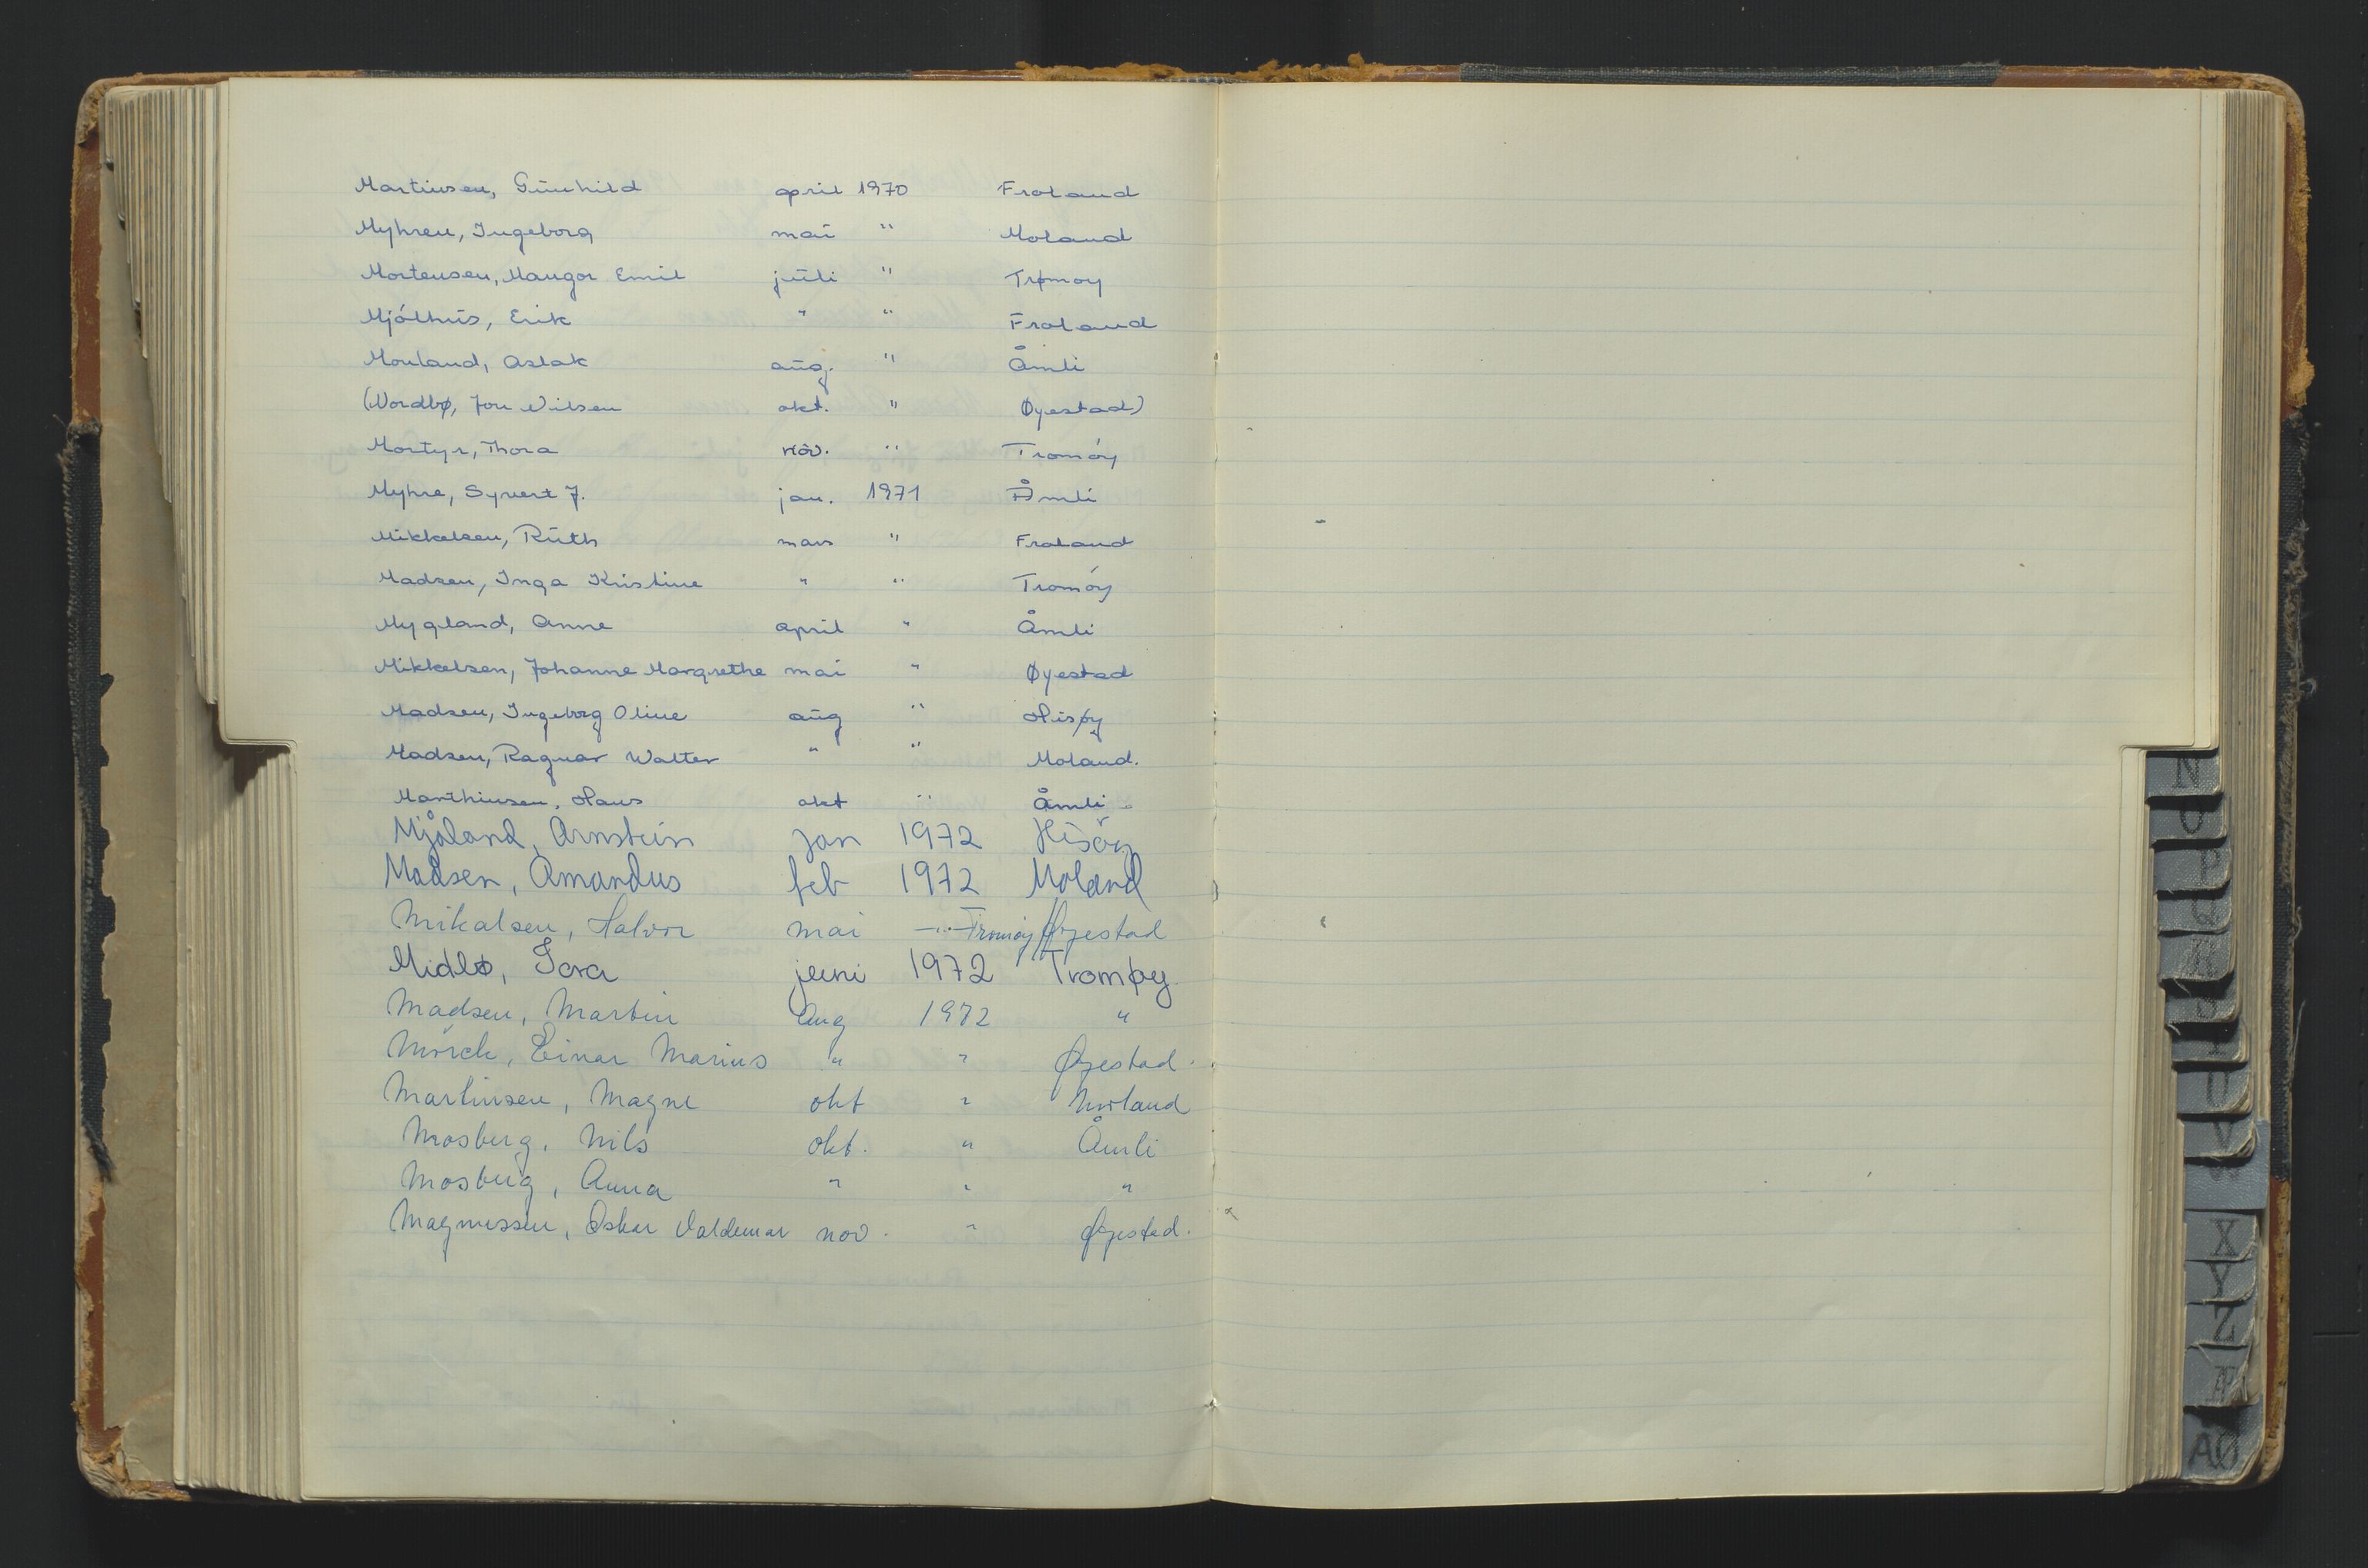 Martinsen, Gunhild april 1970 Froland
Myhren, Ingeborg mai " Moland
Mortensen, Mangor Emil juli " Tromøy
Mjólhus, Erik " " Froland
Monland, Aslak aug. " Åmli
(Nordbø, Jon Nilsen okt. " Øyestad)
Mortyr, Thora nov. " Tromóy
Myhre, Syvert J. jan. 1971 Åmli
Mikkelsen, Ruth mars " Froland
Madsen, Inga Kristine " " Tromóy
Mygland, Anne april " Åmli
Mikkelsen, Johanne Margrethe mai " Øyestad
Madsen, Ingeborg Oline aug " Hisøy
Madsen, Ragnar Walter " " Moland.
Marthinsen, Hans okt " Åmli
Mjåland, Arnstein jan 1972 Hisöy
Madsen, Amandus feb 1972 Moland
Mikalsen, Halvor mai —"— Tromøy/Øyestad
Midlø, Tora juni 1972 Tromøy.
Madsen, Martin Aug 1972 "
Mörck, Einar Marius " " Øyestad.
Martinsen, Magne okt " Moland
Mosberg, Nils okt. " Åmli
Mosberg, Anna " " "
Magnussen, Oskar Valdemar nov. " Øyestad.
N
O
P
Q
R
S
T
U
V
W
X
Y
Z
Æ
AØ